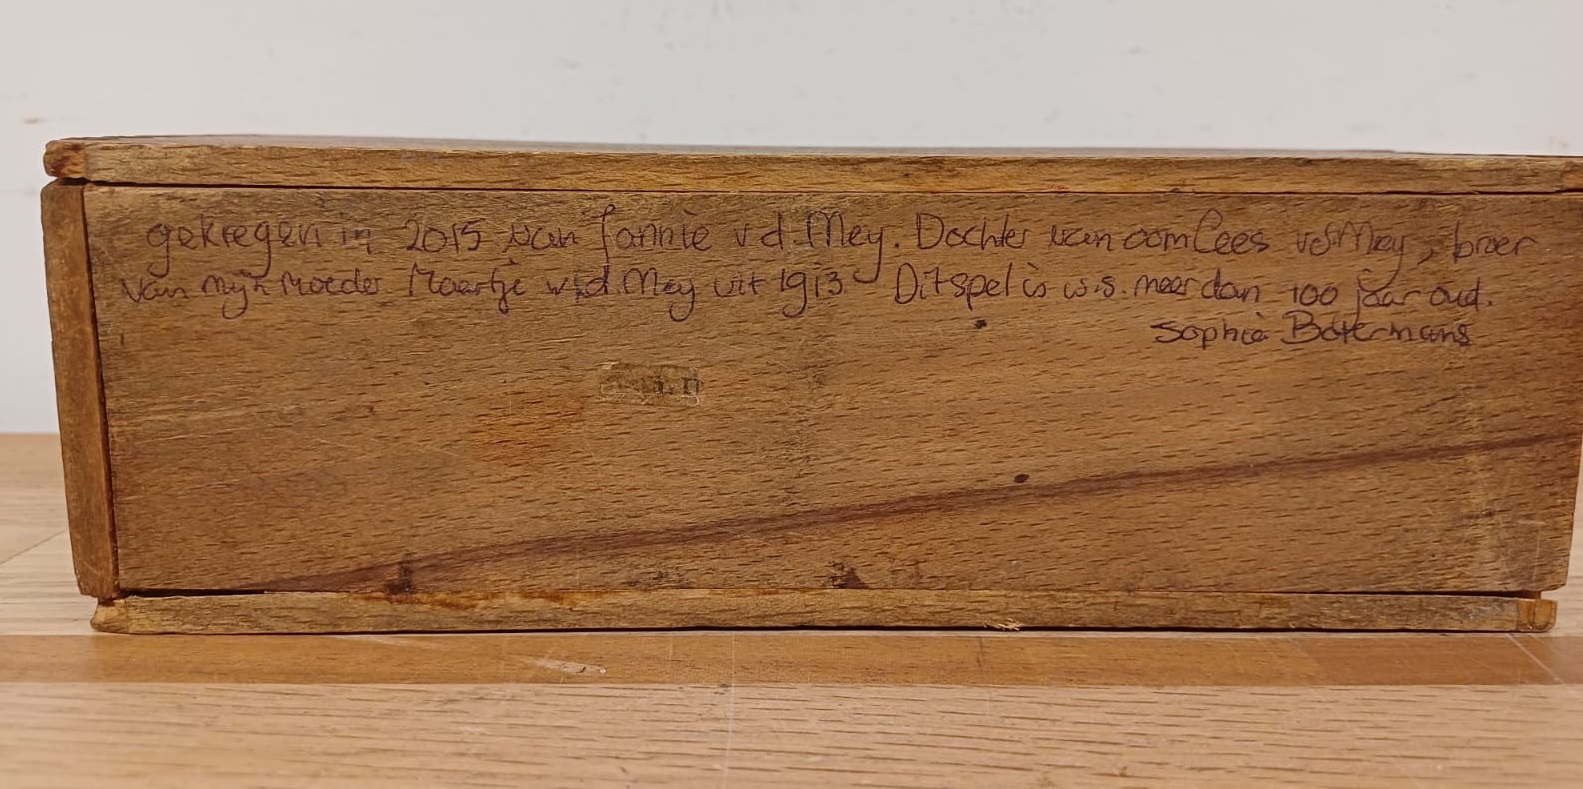 gekregen in 2015 van Jannie v d. Mey. Dochter van oom Cees vd Mey, broer
van mijn Moeder Maartje v.d. Mey uit 1913 - Dit spel is w.s. meer dan 100 jaar oud.
Sophie Batermans